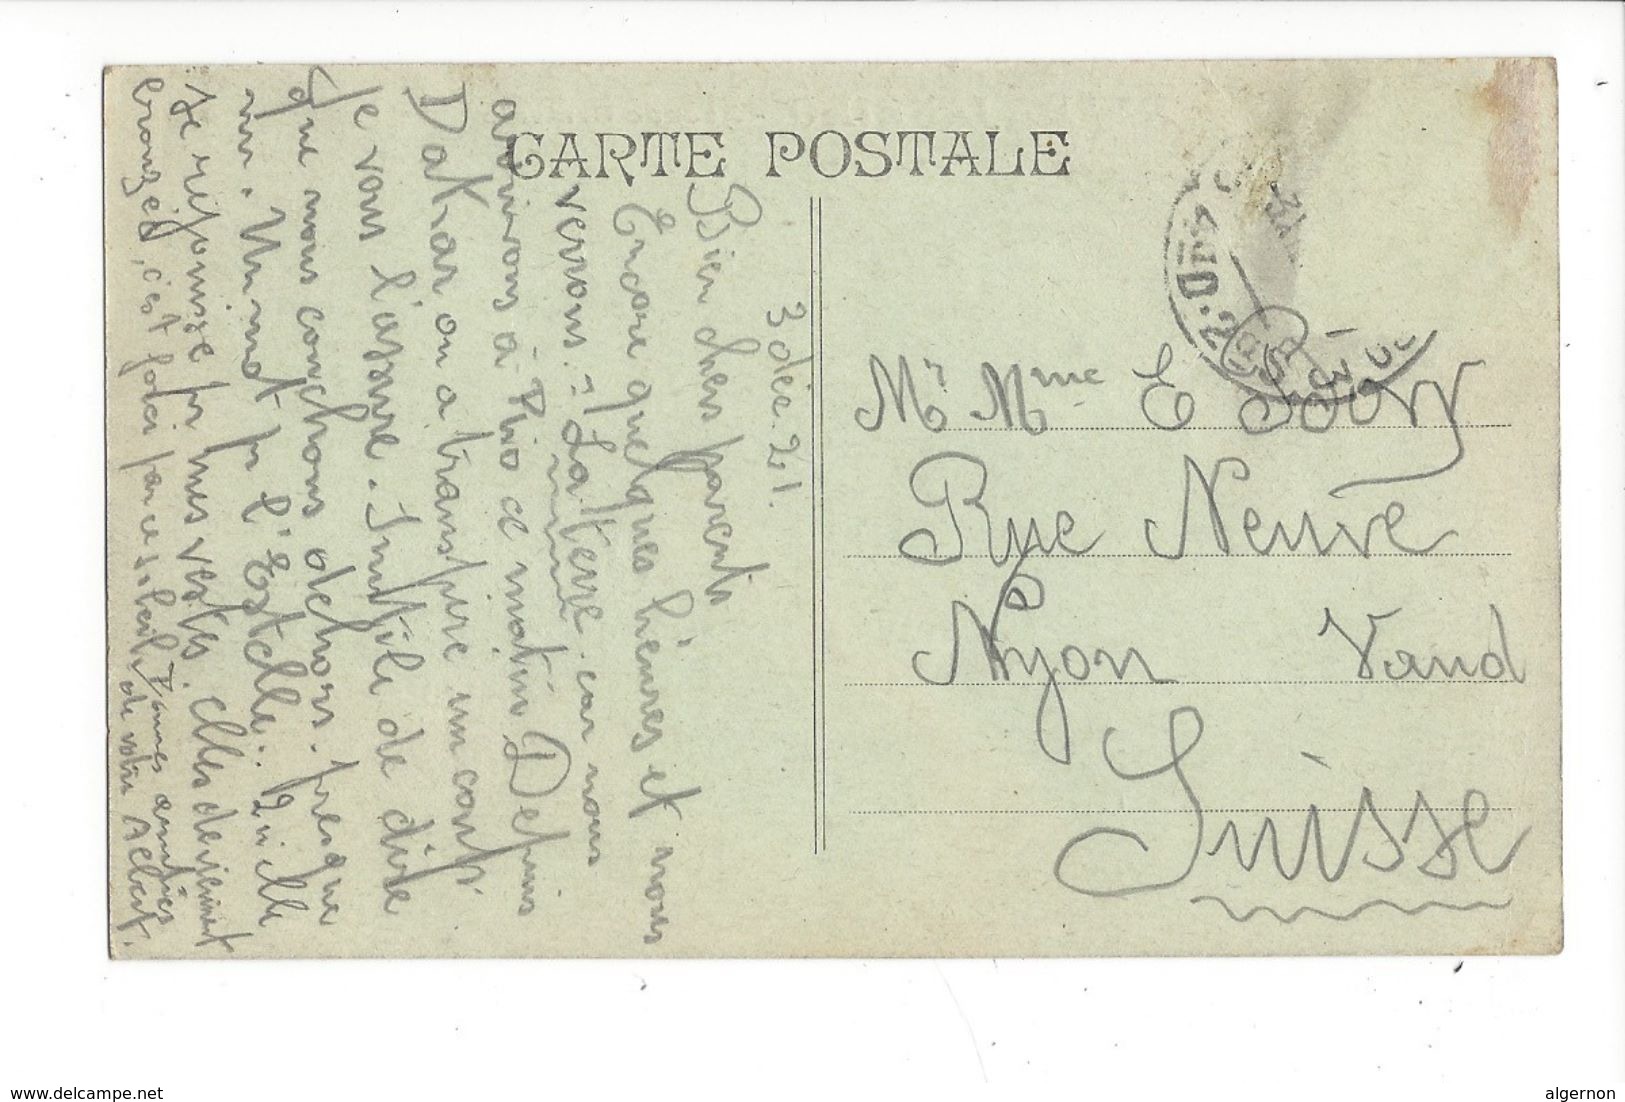 CARTE POSTALE
3 déc. 21.
Bien chers parents
Encore quelques heures et nous
verrons : La terre, car nous
arrivons à Rio ce matin Depuis
Dakar on a transpiré un coup
je vous l'assure. Inutile de dire
que nous couchons dehors. presque
nu. Un mot pr l'Estelle : Qu'elle
se réjouisse pr mes vestes. elles deviennent
bronzées, c'est forcé par ce soleil
Bonnes amitiés
de votre Albert.
Mr Mme E
Rue Neuve
Nyon Vaud
Suisse
www.delcampe.net
algernon